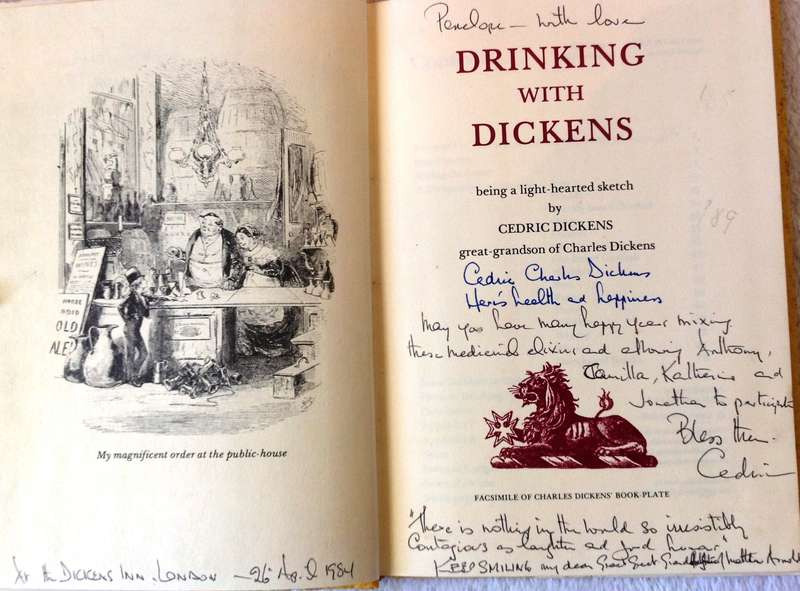 WINES
OLD
ALE
My magnificent order at the public-house
At the DICKENS INN. LONDON — 26 April 1984
Penelope — with love
DRINKING
WITH
DICKENS
being a light-hearted sketch
by
CEDRIC DICKENS
great-grandson of Charles Dickens
Cedric Charles Dickens
Here's health and happiness
May you have many happy years mixing
these medicinal elixirs and allowing Anthony,
Camilla, Katherine and
Jonathan to participate
Bless them.
Cedric
FACSIMILE OF CHARLES DICKENS' BOOK-PLATE
"There is nothing in the world so irresistibly
Contagious as laughter and good humour"
KEEP SMILING my dear Great Great of Matthew Arnold